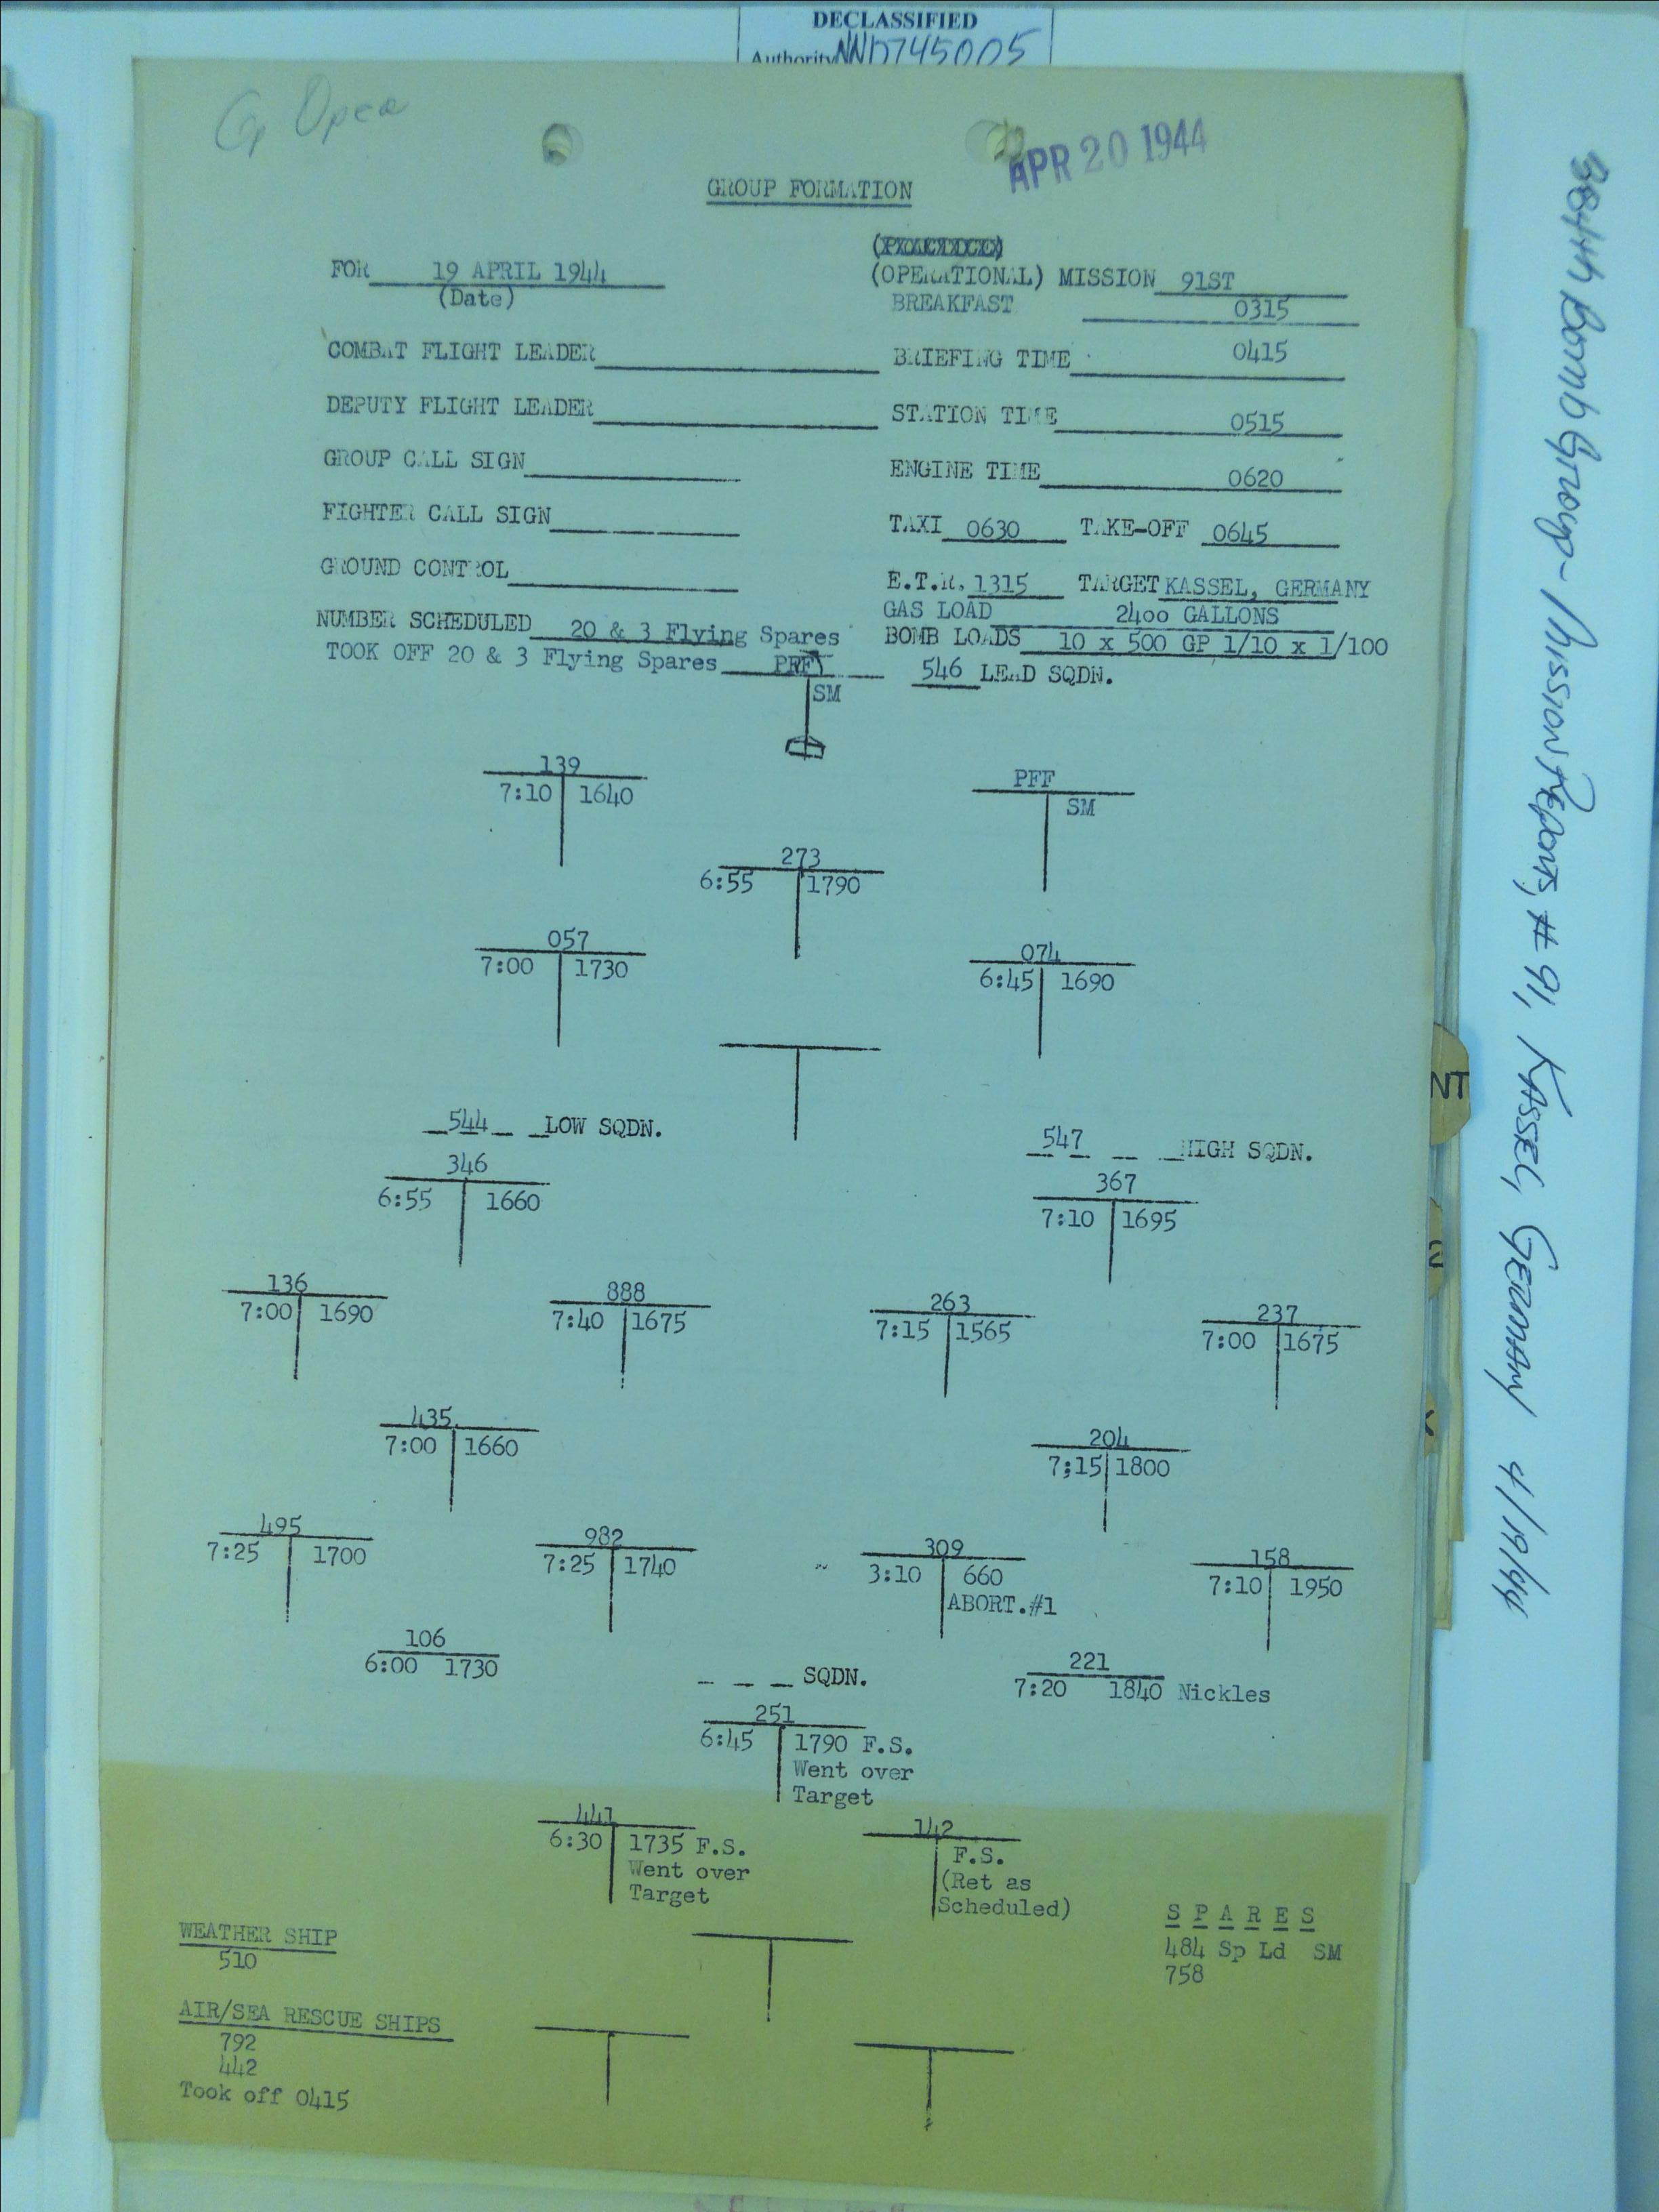 DECLASSIFIED
Authority NND745005
Gp Opes
APR 20 1944
GROUP FORMATION
FOR 19 APRIL 1944
(Date)
(OPERATIONAL) MISSION 91ST
BREAKFAST 0315
COMBAT FLIGHT LEADER
BRIEFING TIME 0415
DEPUTY FLIGHT LEADER
STATION TIME 0515
GROUP CALL SIGN
ENGINE TIME 0620
FIGHTER CALL SIGN
TAXI 0630 TAKE-OFF 0645
GROUND CONTROL
E.T.R. 1315 TARGET KASSEL, GERMANY
GAS LOAD 2400 GALLONS
NUMBER SCHEDULED 20 & 3 Flying Spares
BOMB LOADS 10 x 500 GP 1/10 x 1/100
TOOK OFF 20 & 3 Flying Spares PFF
546 LEAD SQDN.
SM
139
7:10 1640
PFF
SM
273
6:55 1790
057
7:00 1730
074
6:45 1690
544 LOW SQDN.
547 HIGH SQDN.
346
6:55 1660
367
7:10 1695
136
7:00 1690
888
7:40 1675
263
7:15 1565
237
7:00 1675
435
7:00 1660
204
7;15 1800
495
7:25 1700
982
7:25 1740
309
3:10 660
ABORT.#1
158
7:10 1950
106
6:00 1730
SQDN.
221
7:20 1840 Nickles
251
6:45 1790 F.S.
Went over
Target
441
6:30 1735 F.S.
Went over
Target
142
F.S.
(Ret as
Scheduled)
SPARES
484 Sp Ld SM
758
WEATHER SHIP
510
AIR/SEA RESCUE SHIPS
792
442
Took off 0415
384th Bomb Group - Mission Reports, #91, KASSEL, GERMANY 4/19/44
NT
2